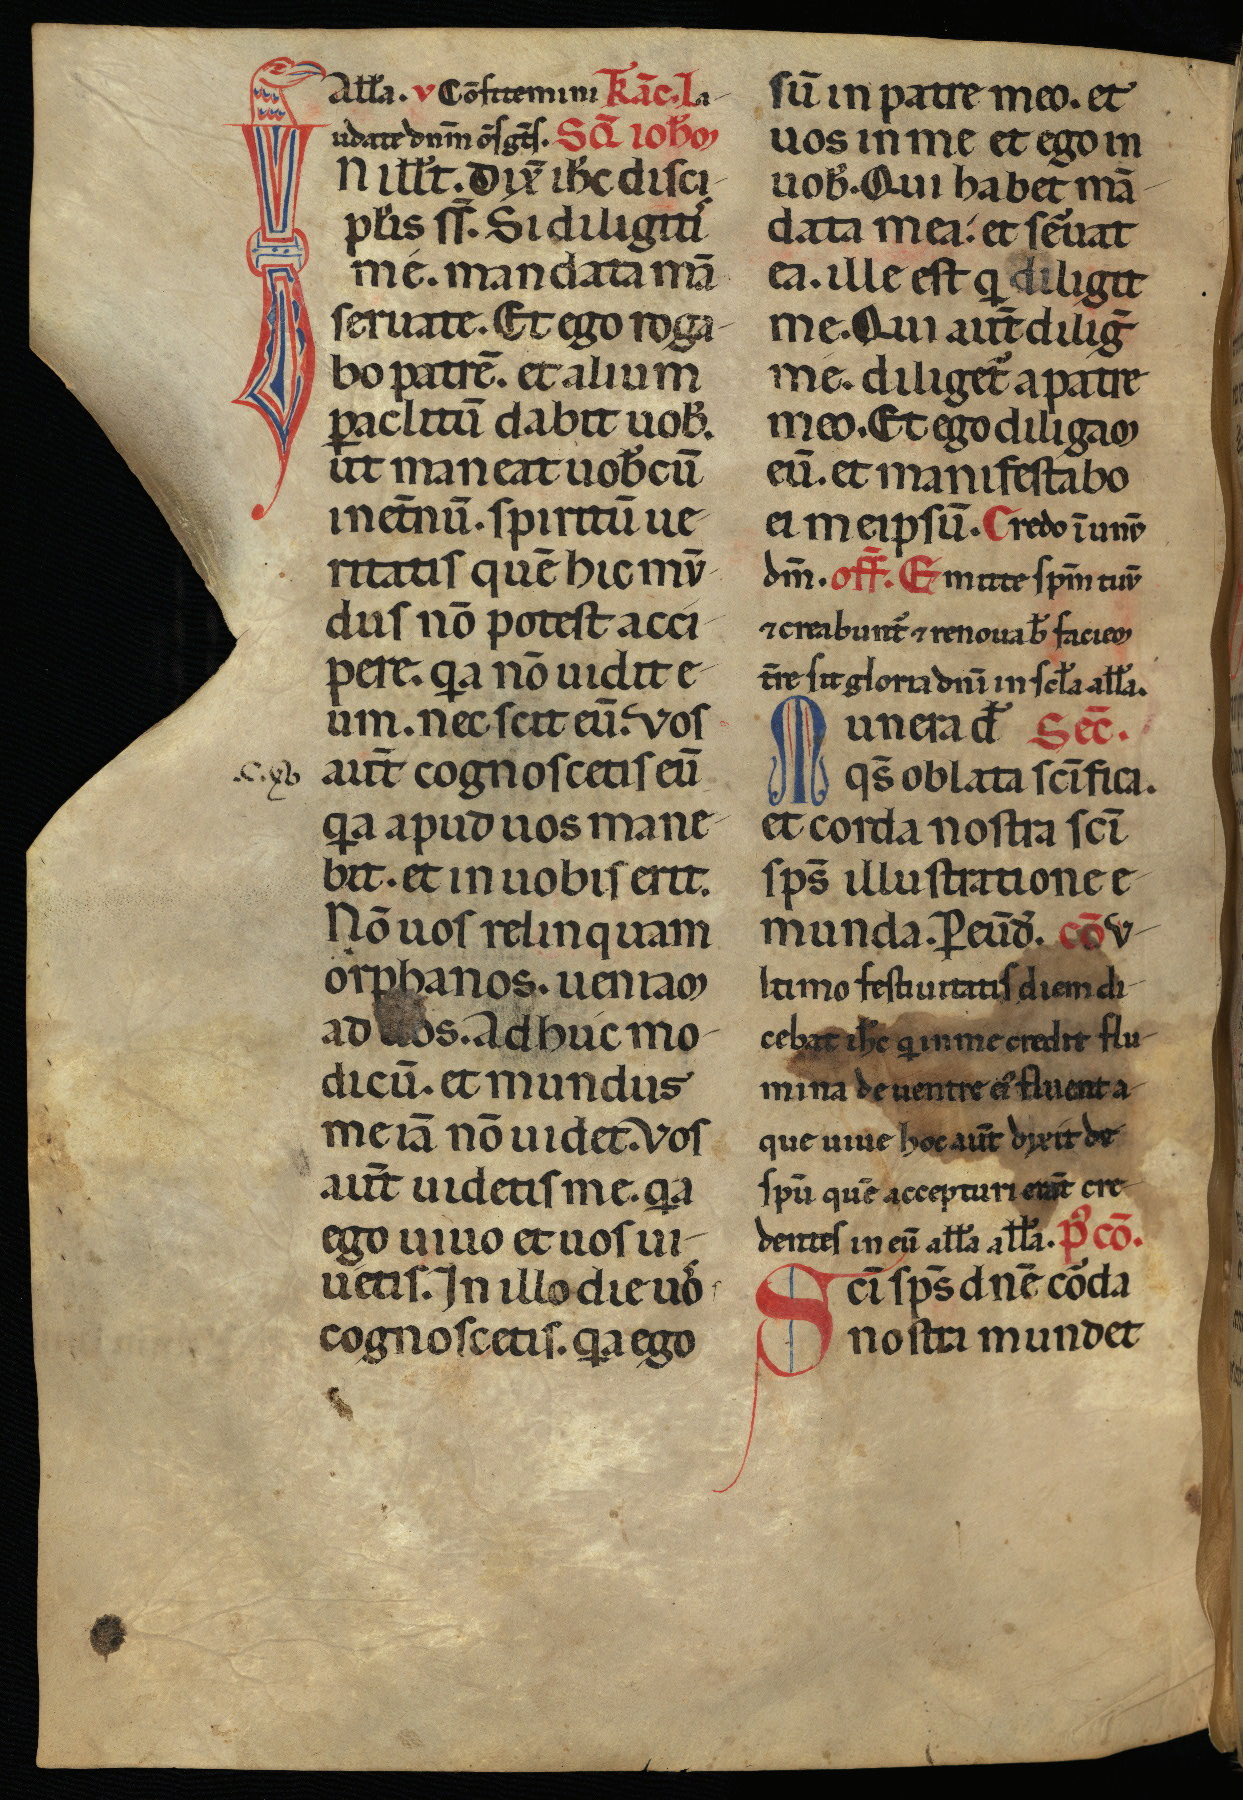 All̃a. v Cõfitemini Kãc. La-
udate dnm̃ õs gt̃s. Scd̃ ioħm
IN ill̃t. Dix̃ ihc̃ disci-
pl̃is sĩ. Si diligiti
me. mandata mã
seruate. Et ego roga-
bo patrẽ. et alium
paclitũ dabit uob̃.
ut maneat uob̃cũ
in et̃nũ. spiritũ ue-
ritatis quẽ hic mũ-
dus nõ potest acci-
pere. qa nõ uidit e-
um. nec scit eũ. Vos
aut̃ cognoscetis eũ
.C.xv
qa apud uos mane-
bit. et in uobis erit.
Nõ uos relinquam
orphanos. ueniam
ad uos. Adhuc mo-
dicũ. et mundus
me iã nõ uidet. Vos
aut̃ uidetis me. qa
ego uiuo et uos ui-
uetis. In illo die uõ
cognoscetis. qa ego
sũ in patre meo. et
uos in me et ego in
uob̃. Qui habet mã-
data mea: et seũat
ea. ille est q diligit
me. Qui aut̃ dilig̃
me. diliget̃ a patre
meo. Et ego diligam
eũ. et manifestabo
ei meipsũ. Credo ĩ unũ
dm̃. off̃. Emitte spm̃ tuũ
⁊ creabunt̃ ⁊ renouab̃ faciem
t̃re sit gloria dnĩ in scl̃a all̃a.
Munera d̃ Sec̃.
qs̃ oblata scĩfica.
et corda nostra scĩ
sps̃ illustratione e-
munda. P eũd̃. cõ V-
ltimo festiuitatis diem di-
cebat ihc̃ q in me credit flu-
mina de uentre ei fluent a-
que uiue hoc aut̃ dixit de
spũ quẽ accepturi erãt cre-
dentes in eũ all̃a all̃a. P̃ cõ.
Scĩ sps̃ dnẽ cõda
nostra mundet